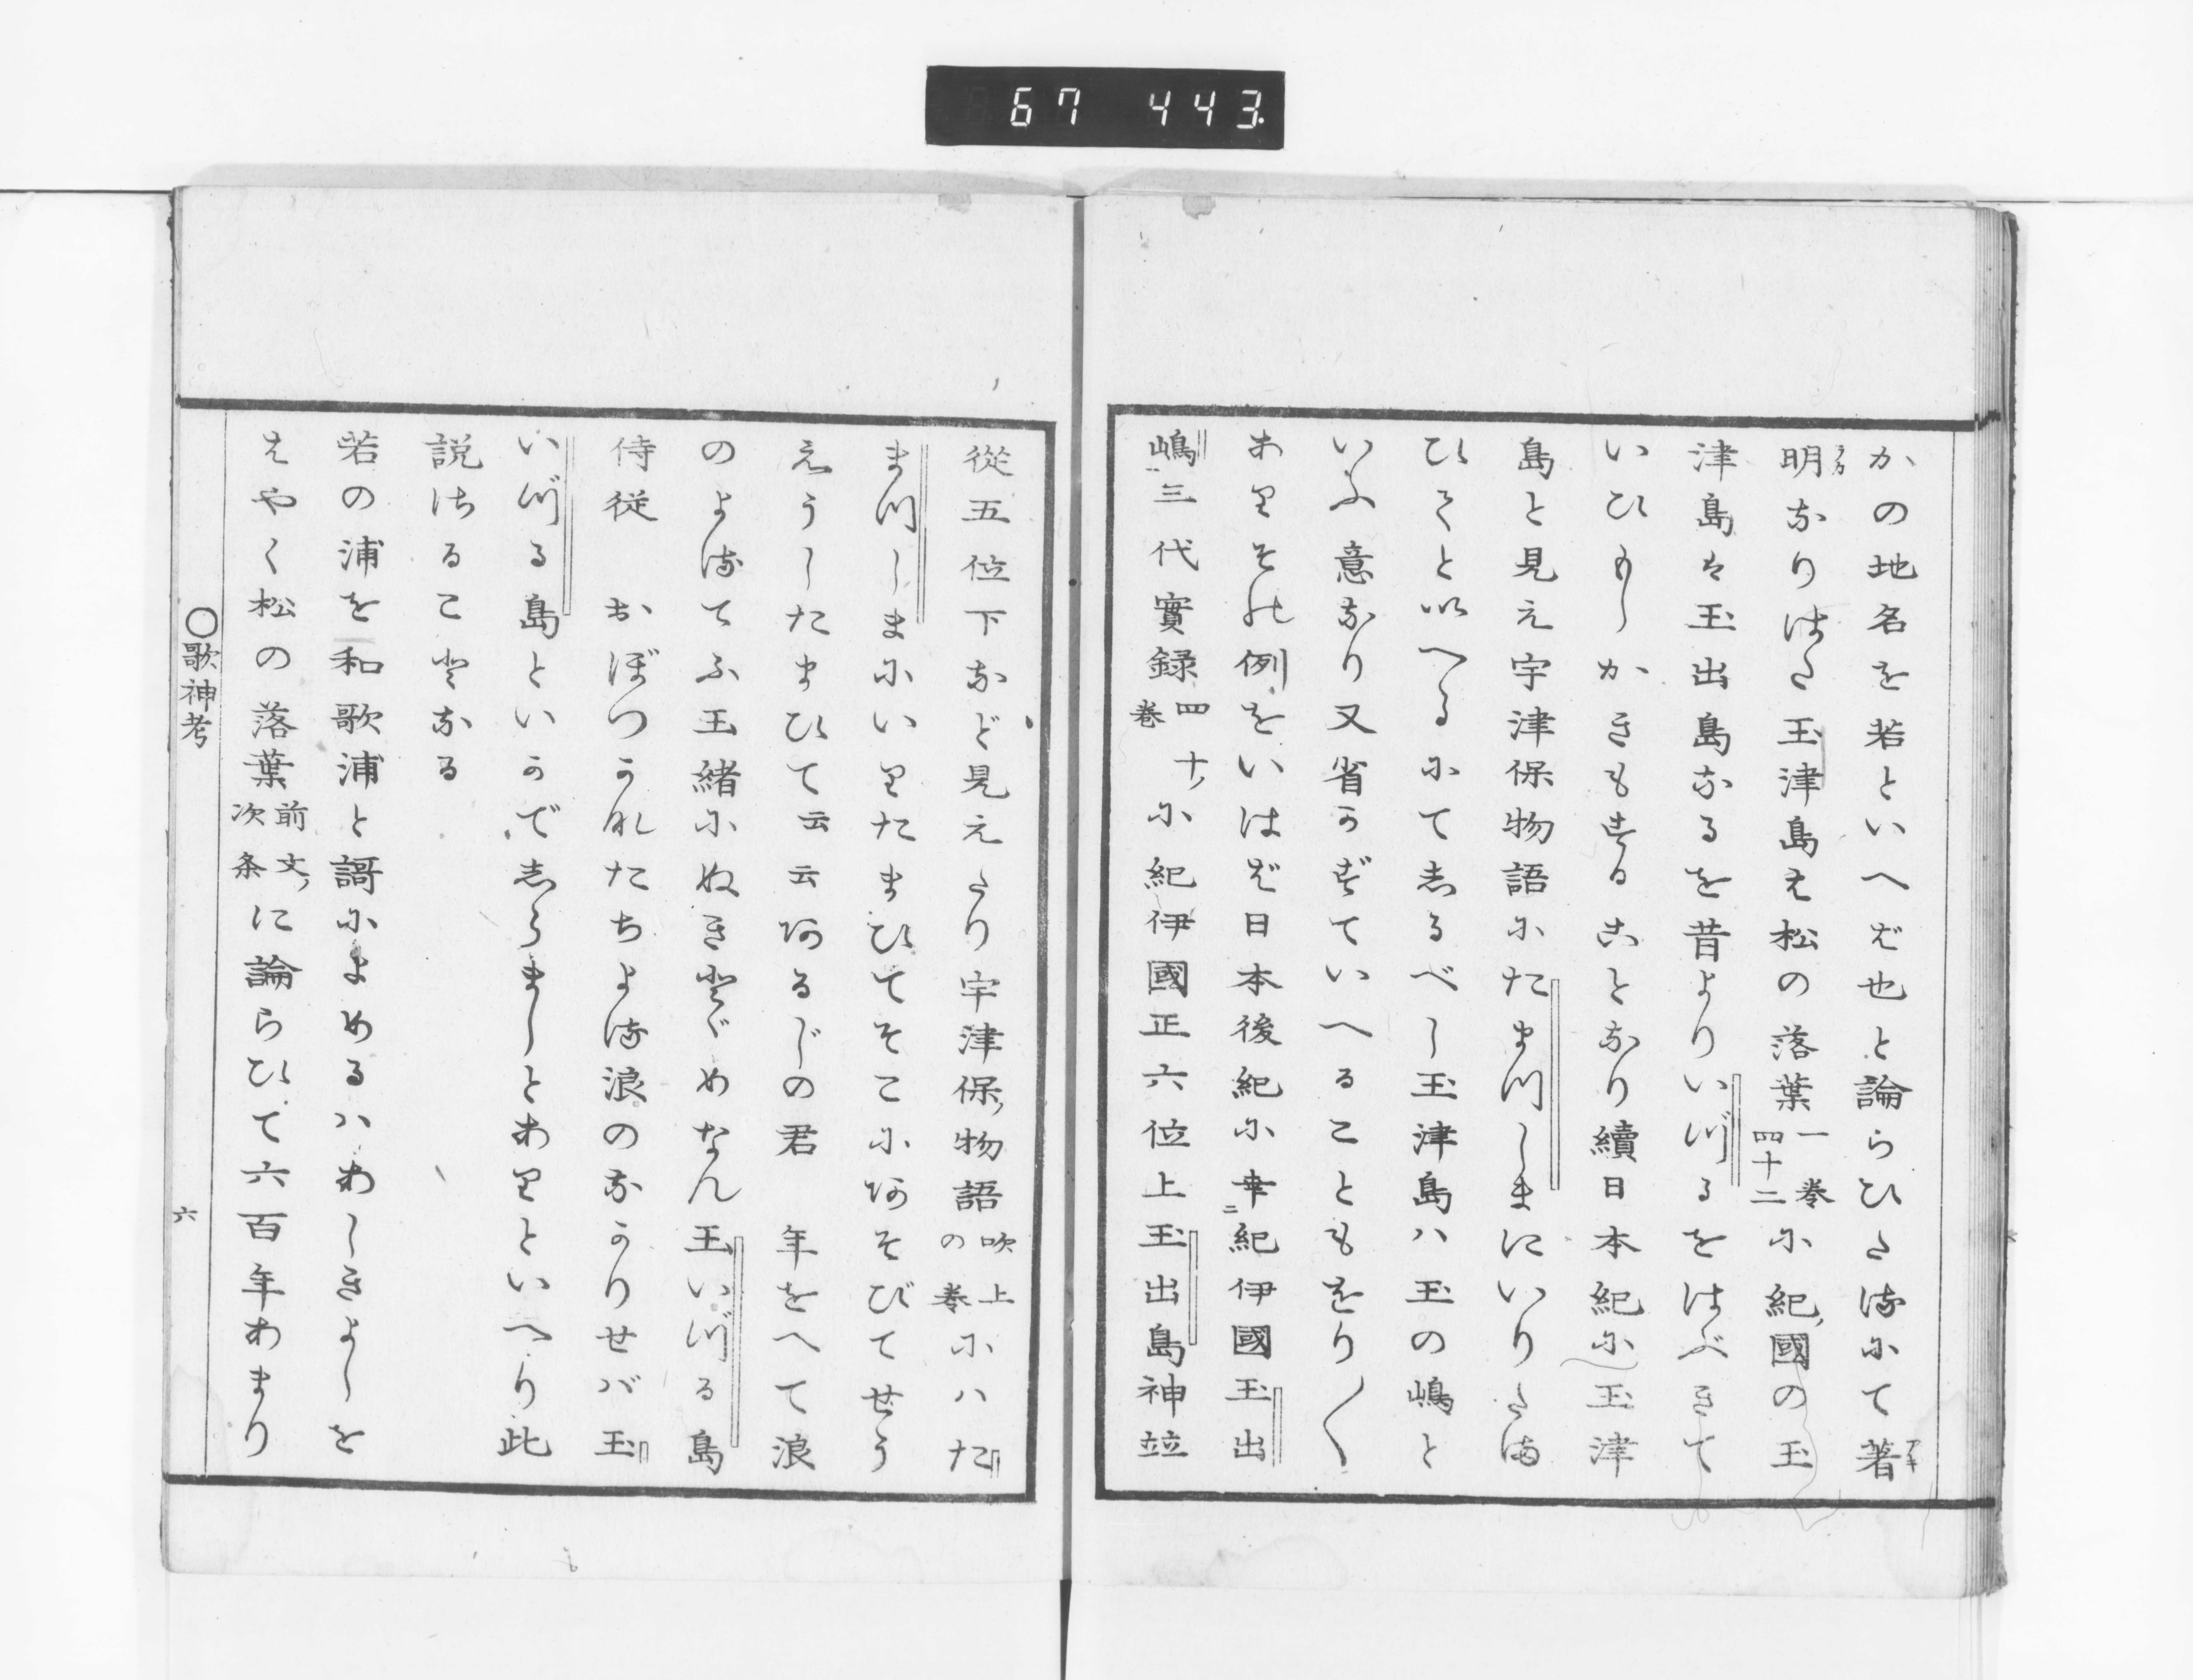 67 443.
かの地名を若といへば也と論らひたるにて著
明なりはた玉津島は松の落葉一巻四十二に紀國の玉
津島は玉出島なるを昔よりいづるをはぶきて
いひもしかきもせることなり續日本紀に玉津
島と見え宇津保物語にたまつしまにいりたま
ひてといへるにて志るべし玉津島ハ玉の嶋と
いふ意なり又省かずていへることもをり〱
ありその例をいはゞ日本後紀に幸ニ紀伊國玉出
嶋三代實録四十巻に紀伊國正六位上玉出島神竝
從五位下など見えたり宇津保物語吹上の巻にハた
まつしまにいりたまひてそこにあそびてせう
えうしたまひて云云あるじの君 年をへて浪
のよるてふ玉緒にぬきとゞめなん玉いづる島
侍従 おぼつかなたちよる浪のなかりせバ玉
いづる島といかで志らましとありといへり此
説はることなる
若の浦を和歌浦と謌によめるハあしきよしを
はやく松の落葉前文次条に論らひて六百年あまり
○歌神考
六